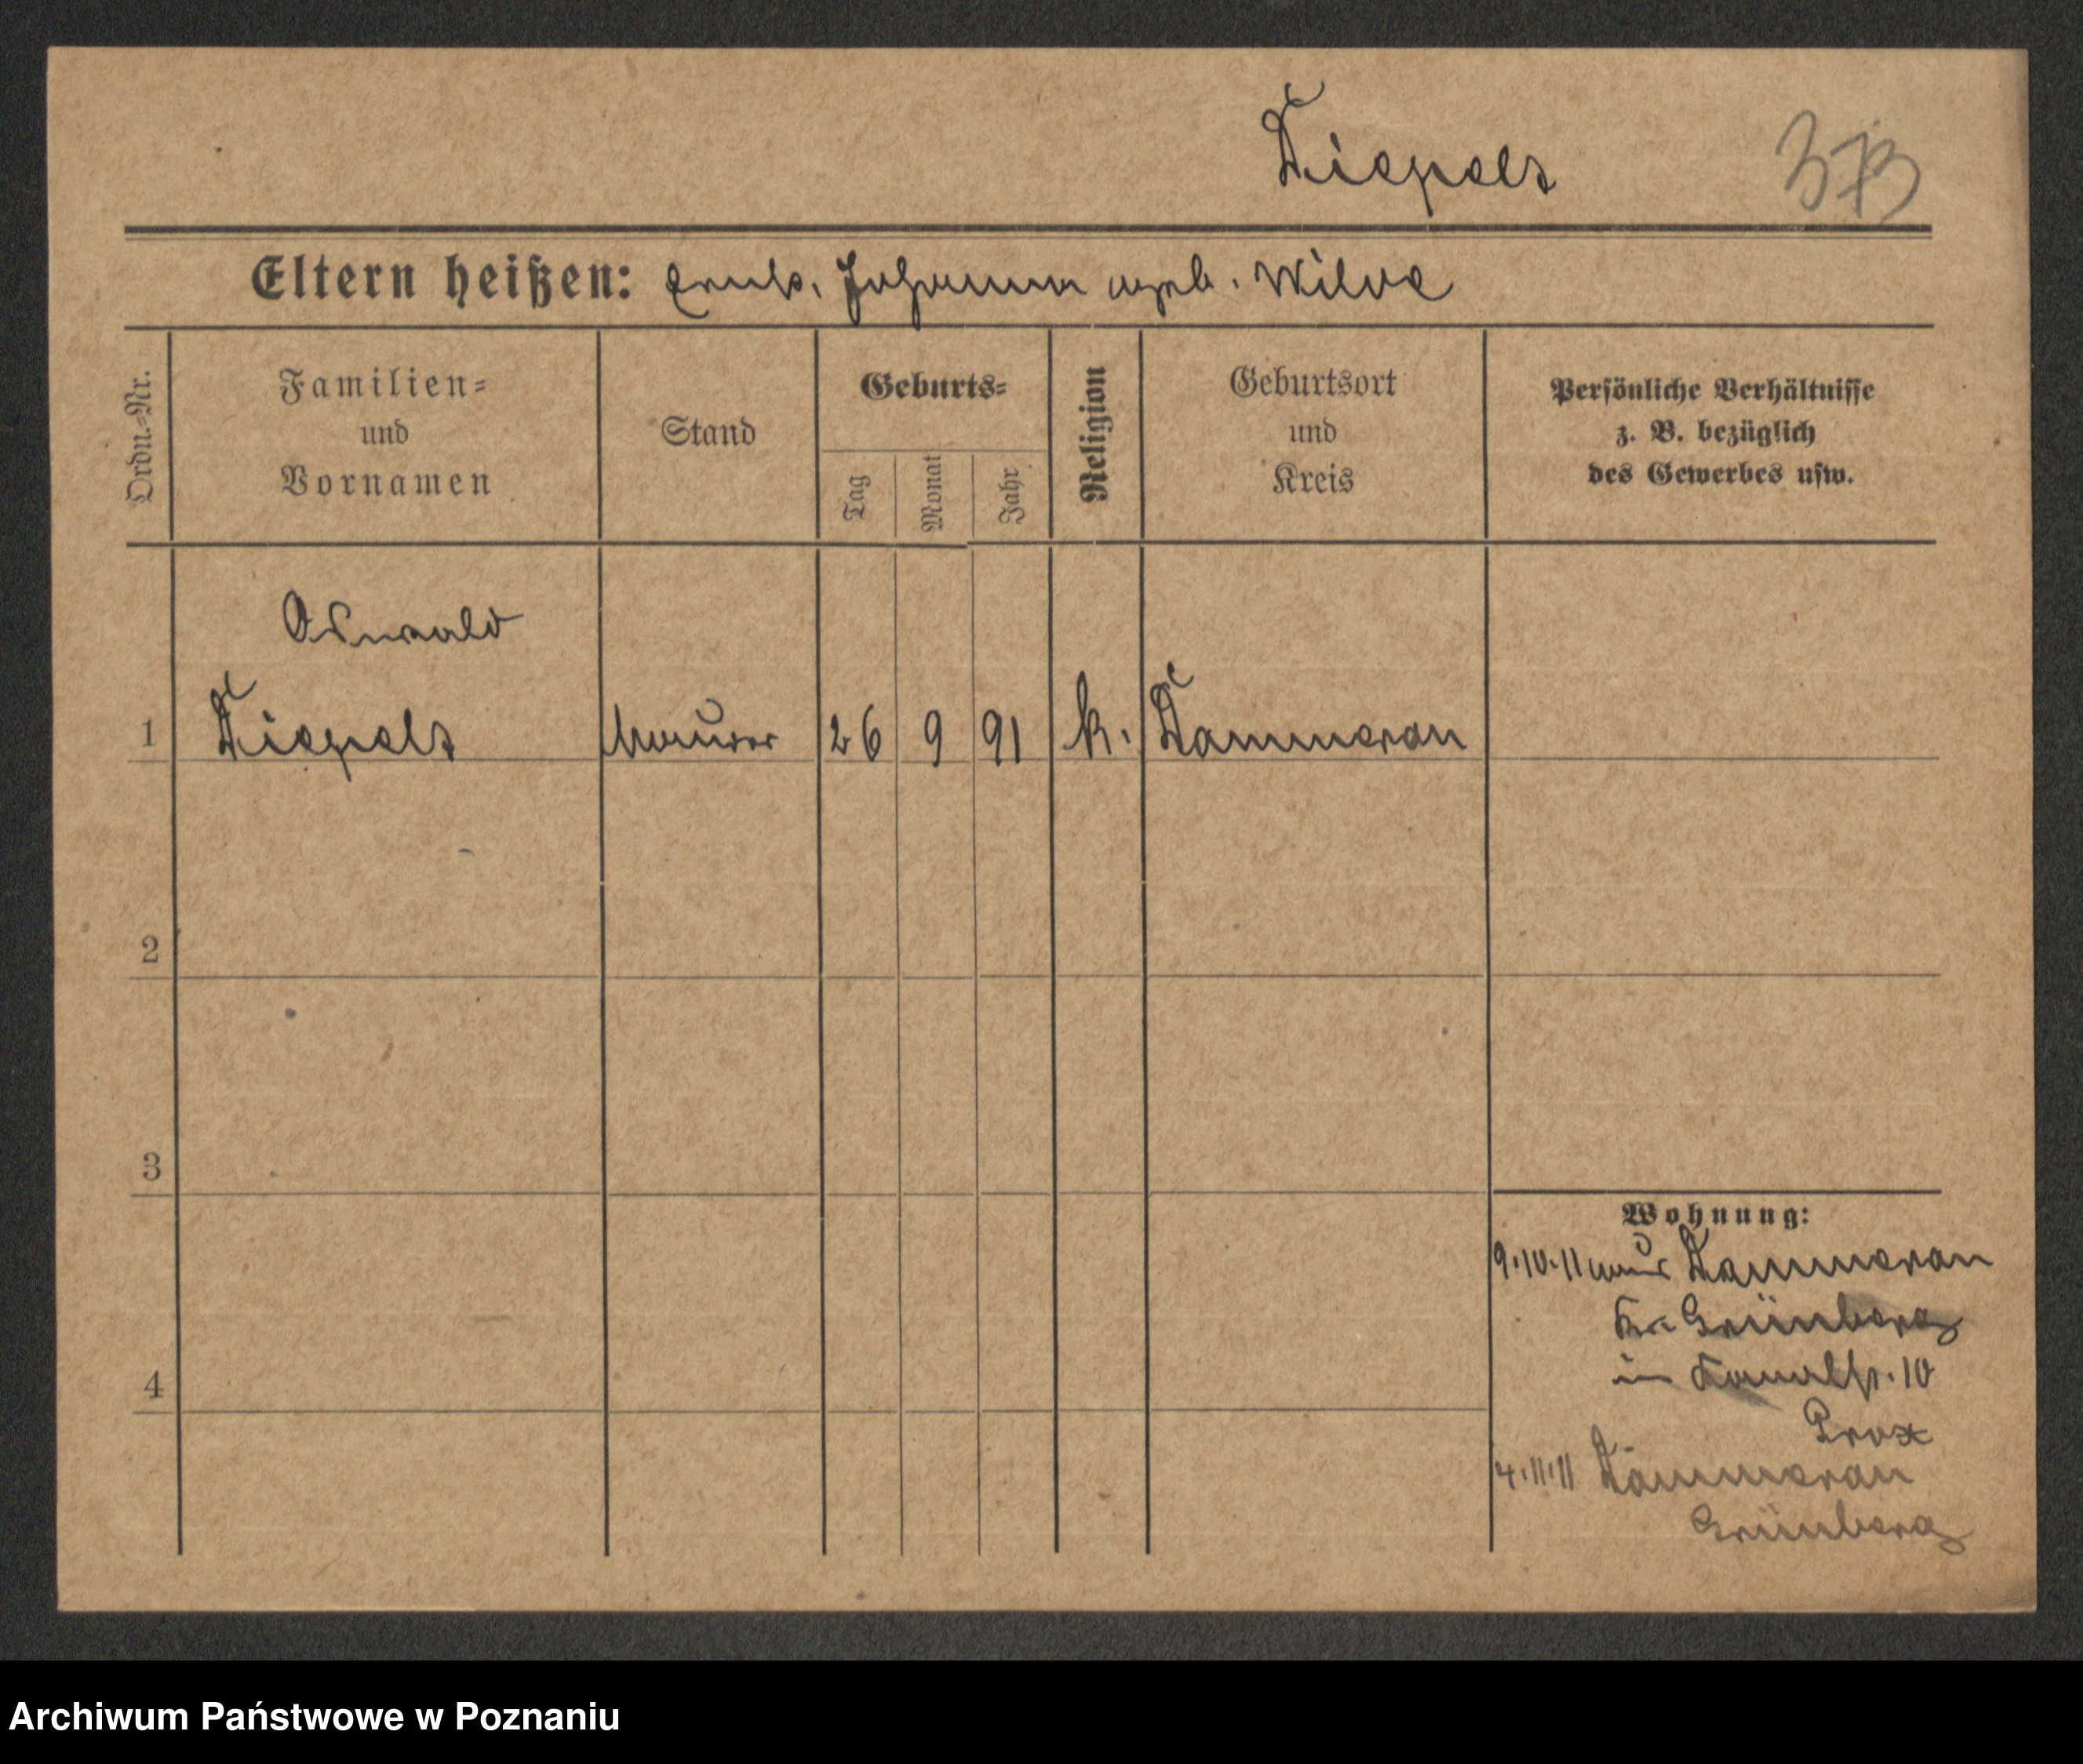 Tiepelt 373
Eltern heißen: Ernst, Johanna geb. Wilde
Ordn.-Nr.
Familien-
und
Vornamen
Stand
Geburts-
Tag
Monat
Jahr
Religion
Geburtsort
und
Kreis
Persönliche Verhältnisse
z. B. bezüglich
des Gewerbes usw.
Oswald
1 Tiepelt Maurer 26 9 91 k. Kammerau
2
3
4
Wohnung:
9.10.11 aus Kammerau
Kr. Grünberg
in Kanalstr. 10
Prox
4.11.11 Kammerau
Grünberg
Archiwum Państwowe w Poznaniu